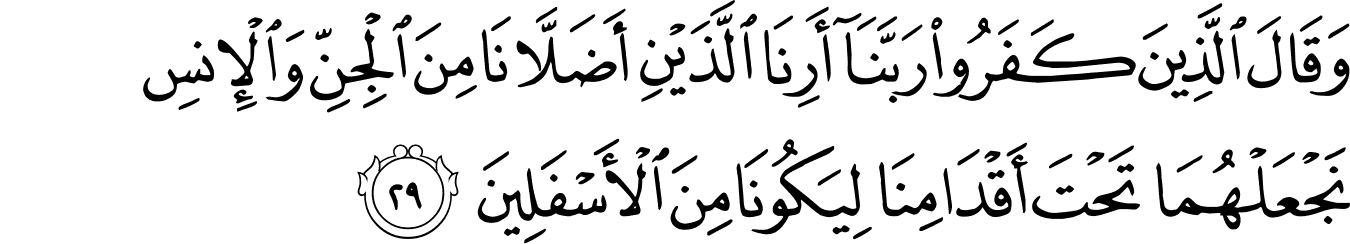 وَقَالَ ٱلَّذِينَ كَفَرُوا۟ رَبَّنَآ أَرِنَا ٱلَّذَيْنِ أَضَلَّانَا مِنَ ٱلْجِنِّ وَٱلْإِنسِ
نَجْعَلْهُمَا تَحْتَ أَقْدَامِنَا لِيَكُونَا مِنَ ٱلْأَسْفَلِينَ ٢٩